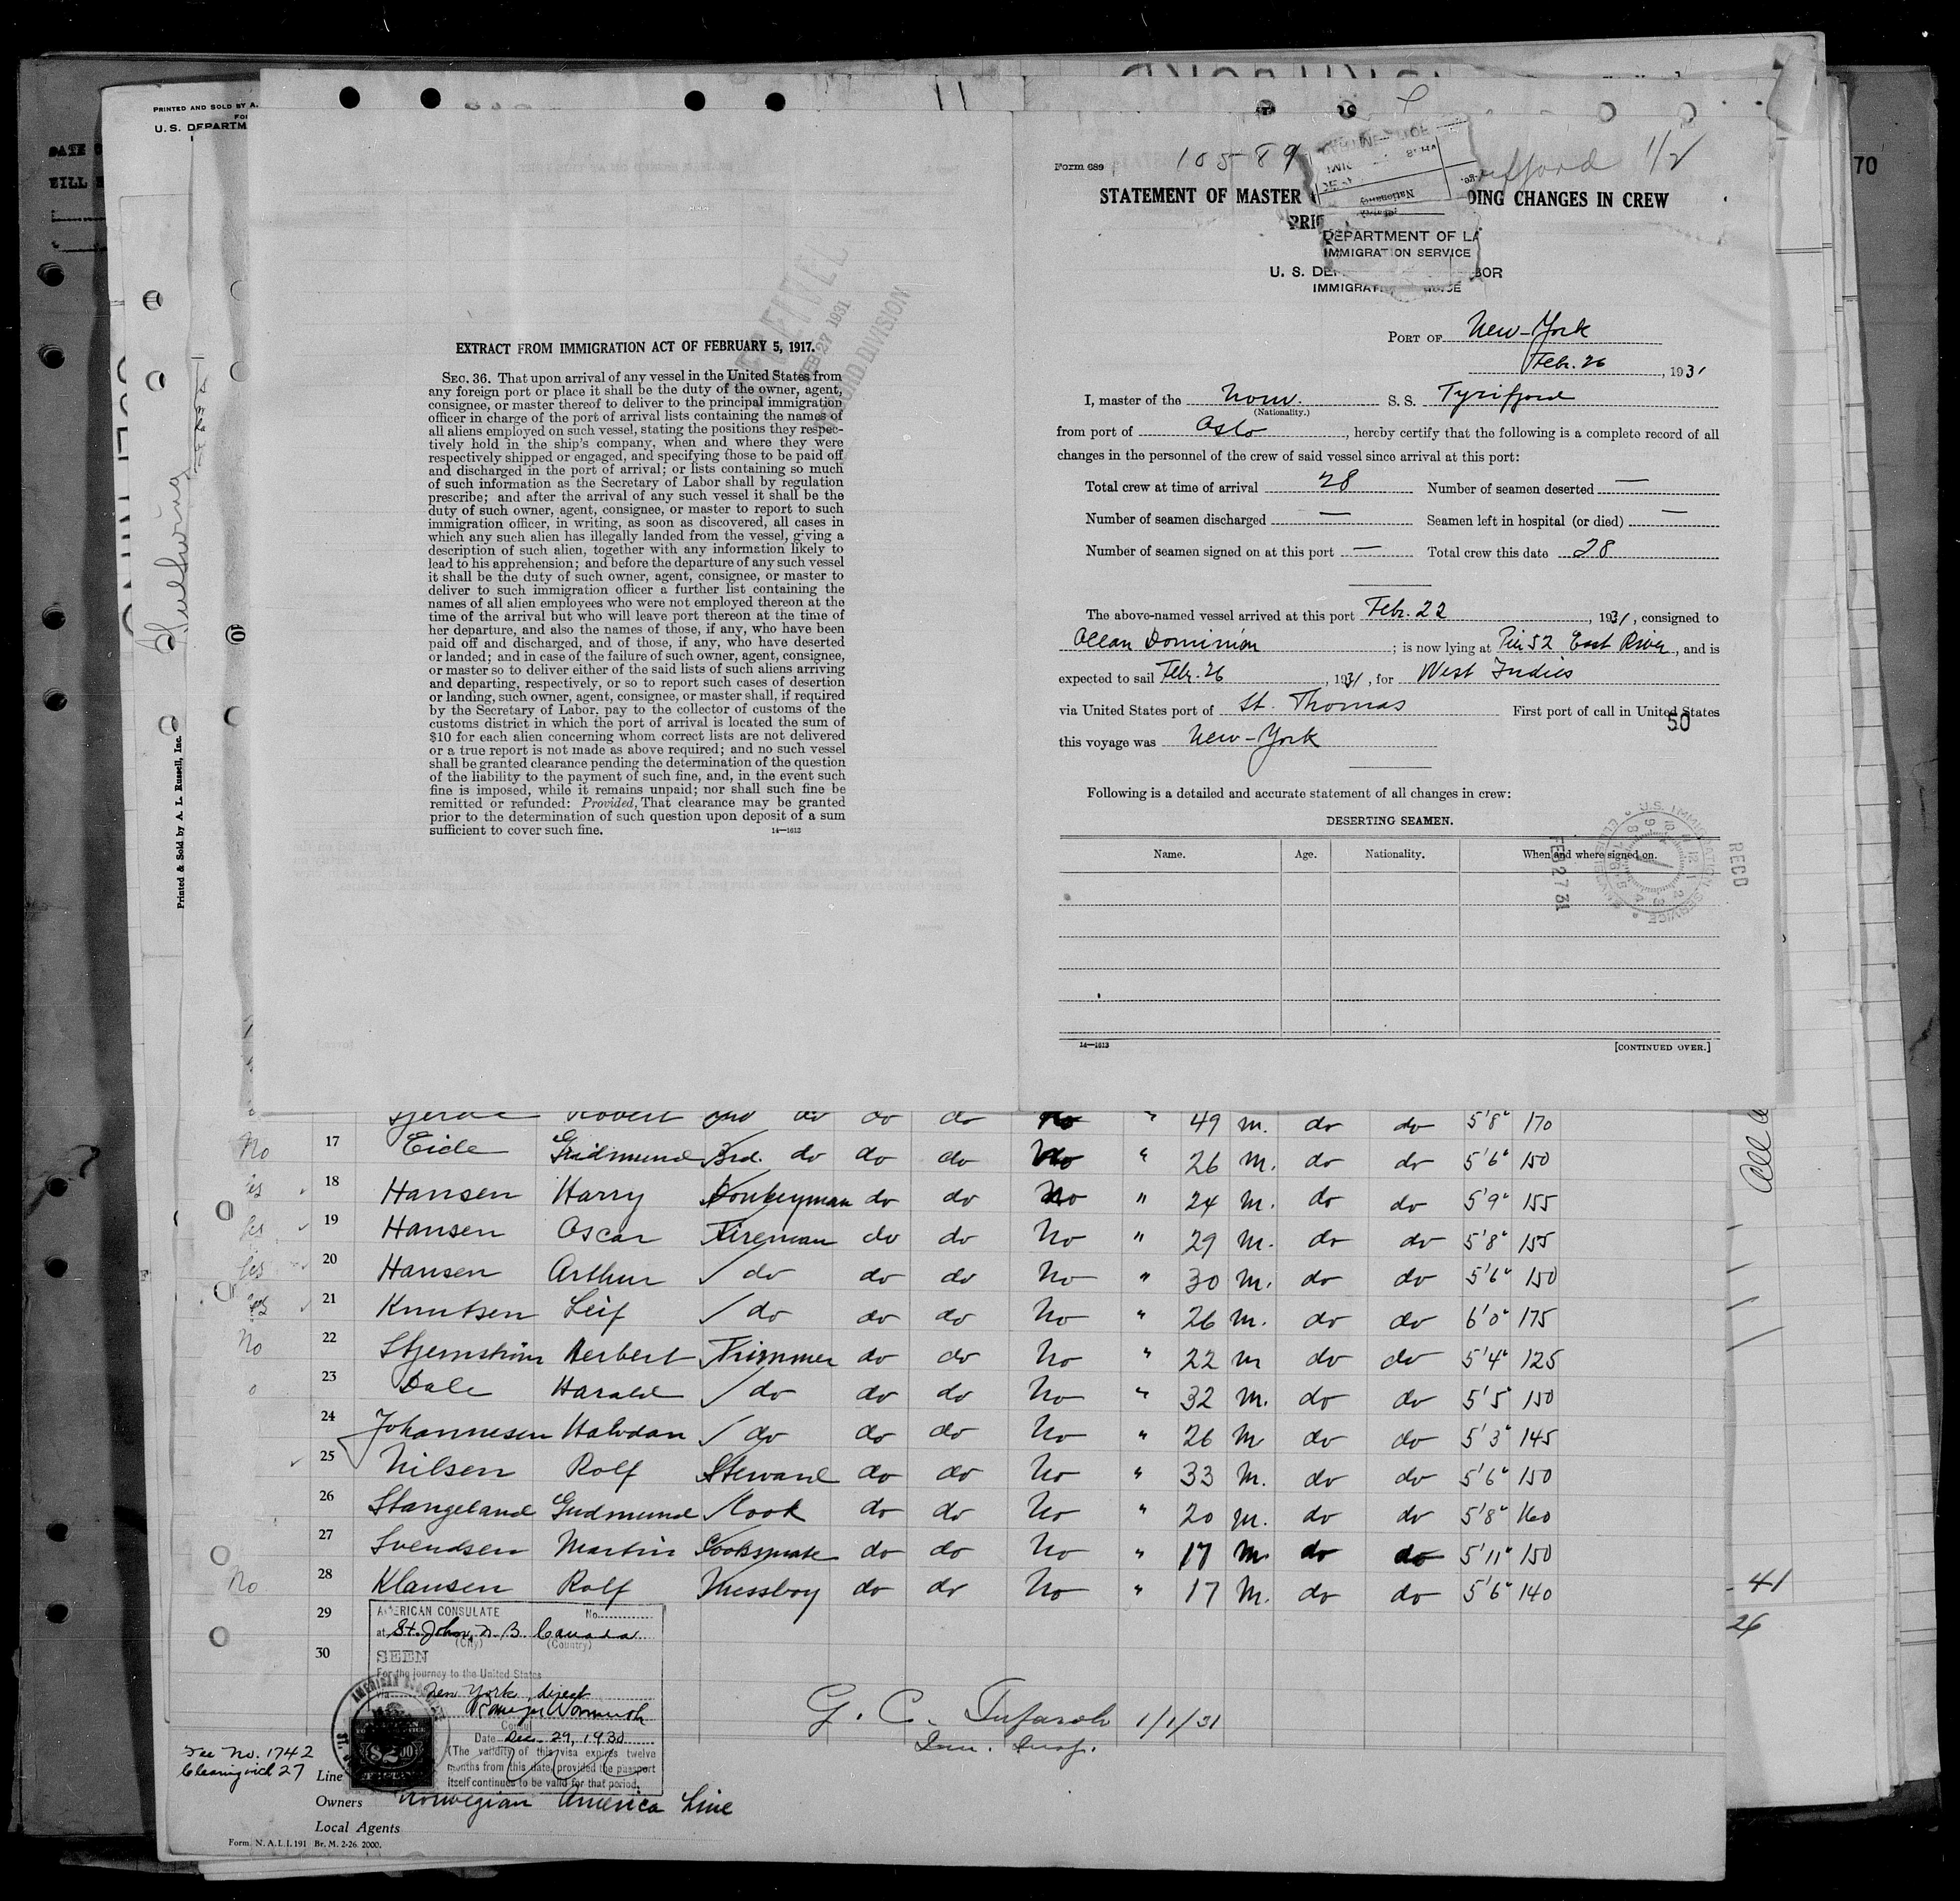 PRINTED AND SOLD BY A.
U. S. DEPARTM
Printed & Sold by A. L. Russell, Inc.
70
11
EXTRACT FROM IMMIGRATION ACT OF FEBRUARY 5, 1917.
SEC. 36. That upon arrival of any vessel in the United States from
any foreign port or place it shall be the duty of the owner, agent,
consignee, or master thereof to deliver to the principal immigration
officer in charge of the port of arrival lists containing the names of
all aliens employed on such vessel, stating the positions they respec-
tively hold in the ship's company, when and where they were
respectively shipped or engaged, and specifying those to be paid off
and discharged in the port of arrival; or lists containing so much
of such information as the Secretary of Labor shall by regulation
prescribe; and after the arrival of any such vessel it shall be the
duty of such owner, agent, consignee, or master to report to such
immigration officer, in writing, as soon as discovered, all cases in
which any such alien has illegally landed from the vessel, giving a
description of such alien, together with any information likely to
lead to his apprehension; and before the departure of any such vessel
it shall be the duty of such owner, agent, consignee, or master to
deliver to such immigration officer a further list containing the
names of all alien employees who were not employed thereon at the
time of the arrival but who will leave port thereon at the time of
her departure, and also the names of those, if any, who have been
paid off and discharged, and of those, if any, who have deserted
or landed; and in case of the failure of such owner, agent, consignee,
or master so to deliver either of the said lists of such aliens arriving
and departing, respectively, or so to report such cases of desertion
or landing, such owner, agent, consignee, or master shall, if required
by the Secretary of Labor, pay to the collector of customs of the
customs district in which the port of arrival is located the sum of
$10 for each alien concerning whom correct lists are not delivered
or a true report is not made as above required; and no such vessel
shall be granted clearance pending the determination of the question
of the liability to the payment of such fine, and, in the event such
fine is imposed, while it remains unpaid; nor shall such fine be
remitted or refunded: Provided, That clearance may be granted
prior to the determination of such question upon deposit of a sum
sufficient to cover such fine. 14—1613
FEB 27 1931
DIVISION
Form 689
STATEMENT OF MASTER DING CHANGES IN CREW
DEPARTMENT OF LA
IMMIGRATION SERVICE
PORT OF New-York
Feb. 26, 1931
I, master of the Norw. S. S. Tyrifjord
(Nationality.)
from port of Oslo, hereby certify that the following is a complete record of all
changes in the personnel of the crew of said vessel since arrival at this port:
Total crew at time of arrival 28 Number of seamen deserted —
Number of seamen discharged — Seamen left in hospital (or died) —
Number of seamen signed on at this port — Total crew this date 28
The above-named vessel arrived at this port Febr. 22, 1931, consigned to
Ocean Dominion; is now lying at Pier 52 East River, and is
expected to sail Febr. 26, 1931, for West Indies
via United States port of St. Thomas First port of call in United States
50
this voyage was New-York
Following is a detailed and accurate statement of all changes in crew:
DESERTING SEAMEN.
Name. Age. Nationality. When and where signed on.
U.S. IMMIGRATION SERVICE
FEB 27 31
RECD
14—1613 [CONTINUED OVER.]
Robert 2nd do do do No " 49 m. do do 5'8" 170
No 17 Eide Gudmund 3rd. do do do No " 26 M. do do 5'6" 150
18 Hansen Harry Donkeyman do do No " 24 M. do do 5'9" 155
19 Hansen Oscar Fireman do do No " 29 M. do do 5'8" 155
20 Hansen Arthur do do do No " 30 M. do do 5'6" 150
21 Knutsen Leif do do do No " 26 M. do do 6'0" 175
No 22 Stjernström Herbert Trimmer do do No " 22 m do do 5'4" 125
23 Dale Harald do do do No " 32 M. do do 5'5" 150
24 Johannesen Halvdan do do do No " 26 M do do 5'3" 145
25 Nilsen Rolf Steward do do No " 33 M. do do 5'6" 150
26 Stangeland Gudmund Cook do do No " 20 m. do do 5'8" 160
27 Svendsen Martin Cooksmate do do No " 17 M. do do 5'11" 150
No 28 Klausen Rolf Messboy do do No " 17 M. do do 5'6" 140
41
29
26
30
AMERICAN CONSULATE No.
at St. John, N. B. Canada
(City) (Country)
SEEN
For the journey to the United States
via New York, direct
Consul
Date Dec. 29, 1930
(The validity of this visa expires twelve
months from this date, provided the passport
itself continues to be valid for that period.
G. C. 1/1/31
Imm. Insp.
See No. 1742
Line
Owners Norwegian America Line
Local Agents
Form. N. A. L. I. 191 Br. M. 2-26. 2000.